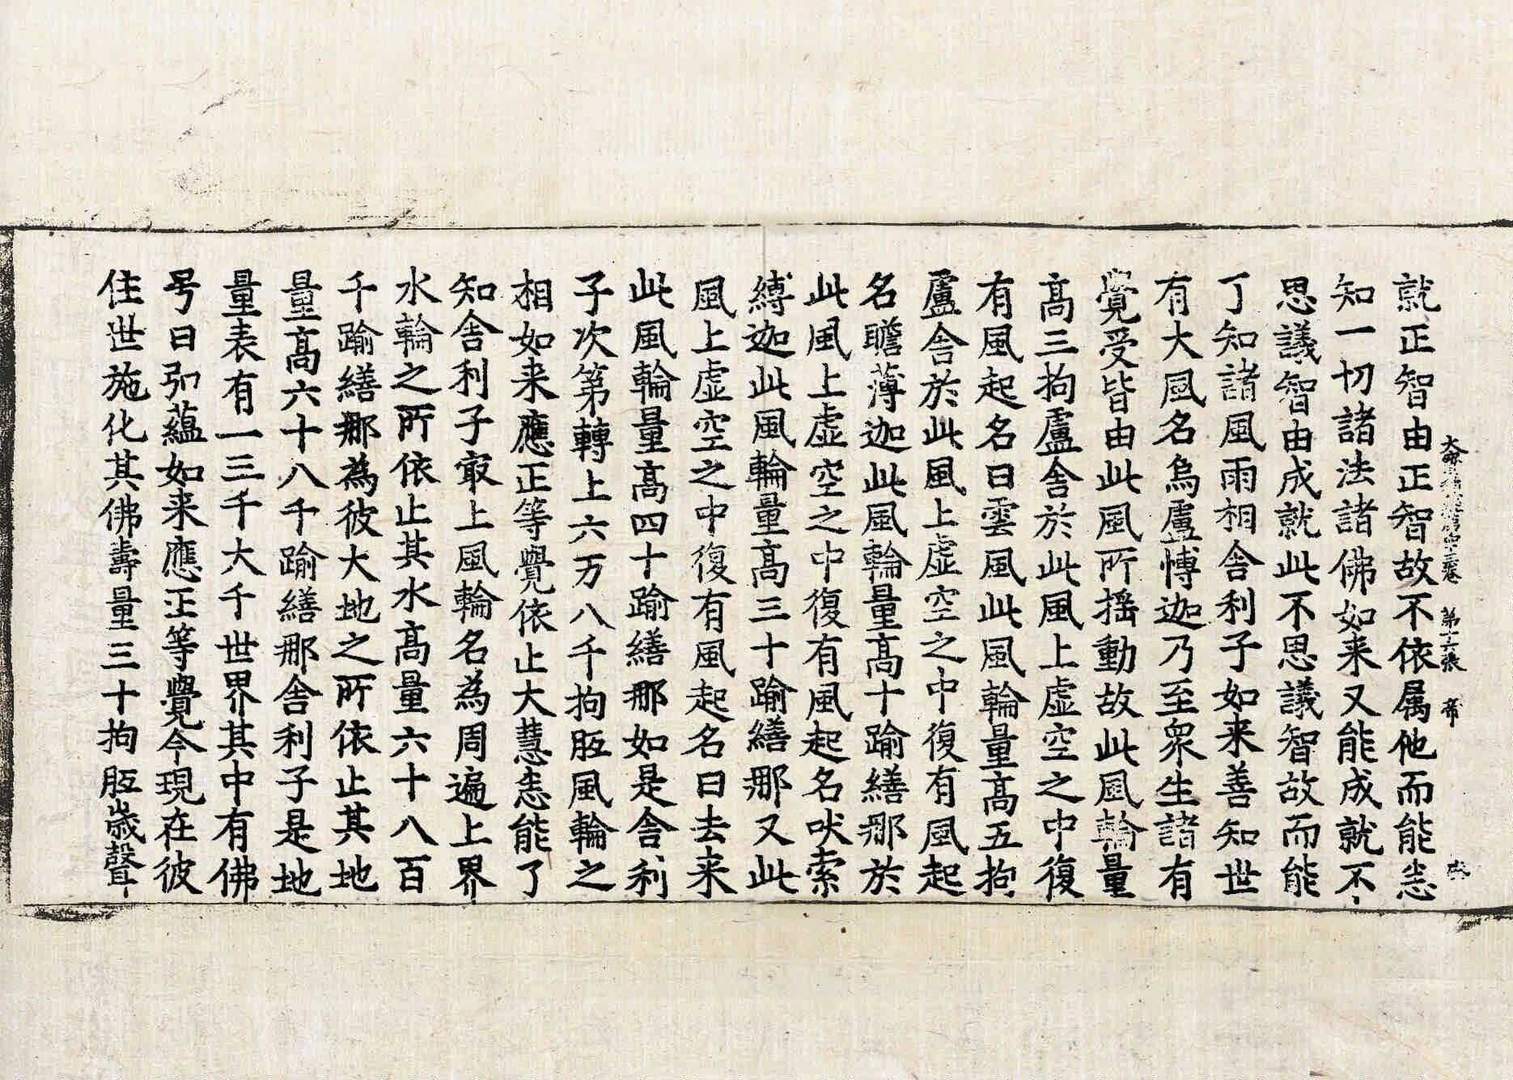 就正智由正智故不依属他而能悉
知一切諸法諸佛如来又能成就不
思議智由成就此不思議智故而能
了知諸風雨相舎利子如来善知世
有大風名烏盧愽迦乃至衆生諸有
覺受皆由此風所揺動故此風輪量
髙三拘盧舎於此風上虚空之中復
有風起名曰雲風此風輪量髙五拘
盧舎於此風上虚空之中復有風起
名瞻薄迦此風輪量髙十踰繕那於
此風上虚空之中復有風起名吠索
縛迦此風輪量髙三十踰繕那又此
風上虚空之中復有風起名曰去来
此風輪量髙四十踰繕那如是舎利
子次第轉上六万八千拘胝風輪之
相如来應正等覺依止大慧悉能了
知舎利子㝡上風輪名為周遍上界
水輪之所依止其水髙量六十八百
千踰繕那為彼大地之所依止其地
量髙六十八千踰繕那舎利子是地
量表有一三千大千世界其中有佛
号曰弘藴如来應正等覺今現在彼
住世施化其佛壽量三十拘胝歲聲